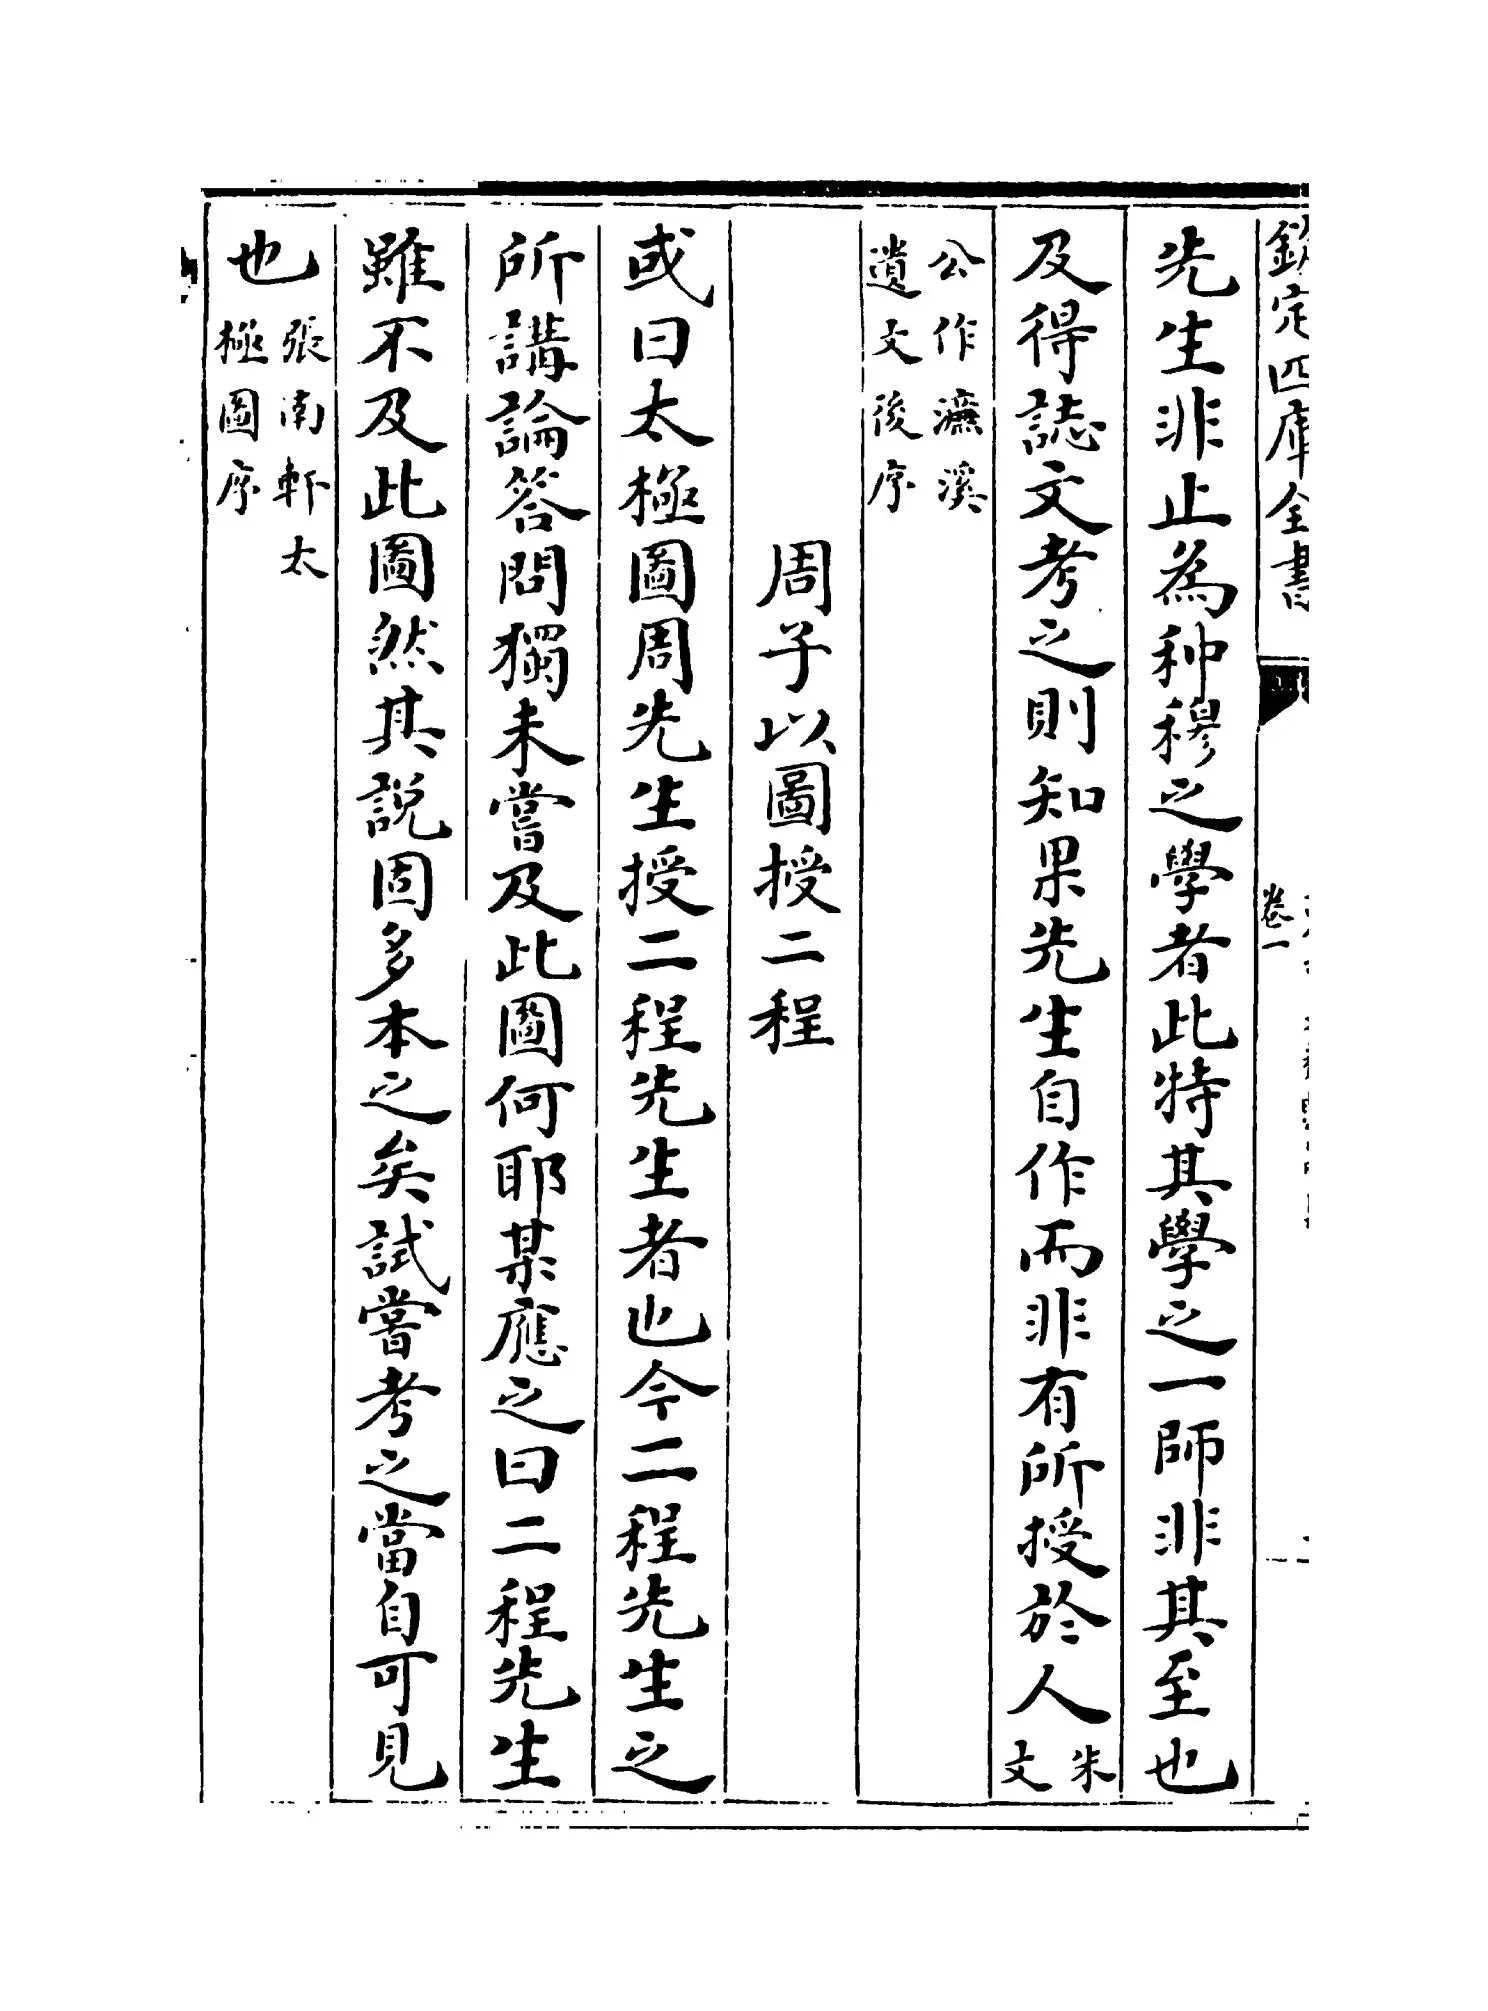 欽定四庫全書
卷一
先生非止為种穆之學者此特其學之一師非其至也
及得誌文考之則知果先生自作而非有所授於人朱文
公作濂溪
遺文後序
周子以圖授二程
或曰太極圖周先生授二程先生者也今二程先生之
所講論答問獨未嘗及此圖何耶某應之曰二程先生
雖不及此圖然其說固多本之矣試嘗考之當自可見
也張南軒太
極圖序